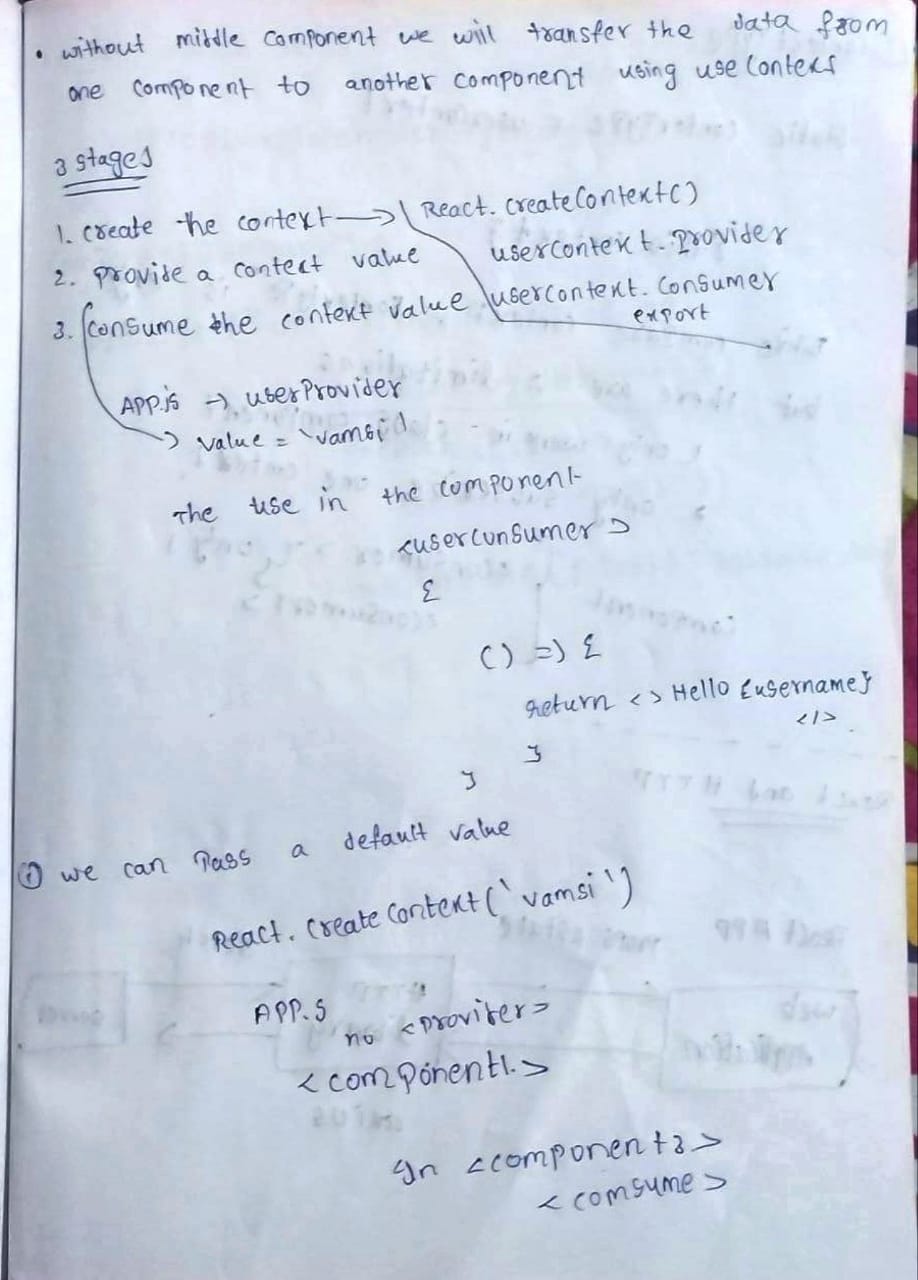 • without middle component we will transfer the data from
one component to another component using use Context
3 stages
1. create the context → React.createContext()
2. provide a context value usercontext.provider
3. consume the context value usercontext.consumer
export
APP.js → userProvider
→ value = 'vamsi'
The use in the component
<userConsumer>
{
() => {
return <> Hello {username}
</>
}
}
① we can Pass a default value
React.createContext('vamsi')
APP.S
no <provider>
<component1.>
In <component3>
<comsume>